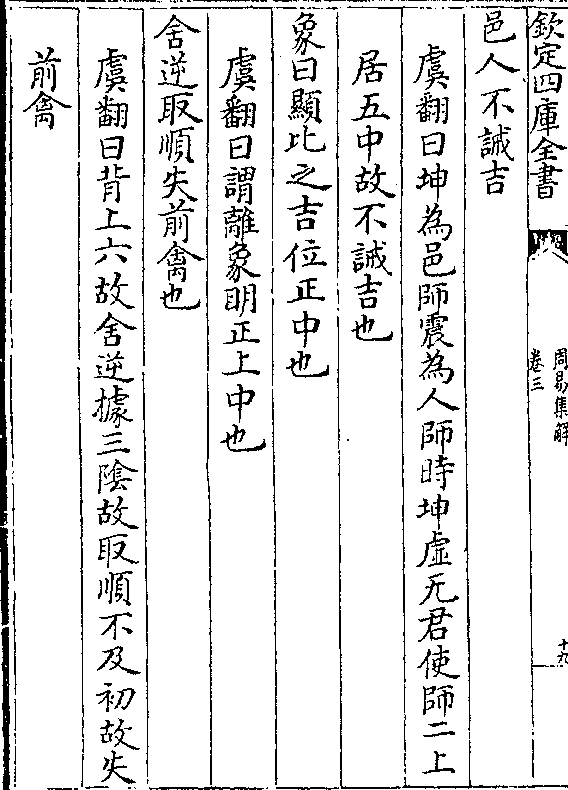 欽定四庫全書
周易集解
卷三
十九
邑人不誡吉
虞翻曰坤為邑師震為人師時坤虛无君使師二上
居五中故不誡吉也
象曰顯比之吉位正中也
虞翻曰謂離象明正上中也
舍逆取順失前禽也
虞翻曰背上六故舍逆據三陰故取順不及初故失
前禽